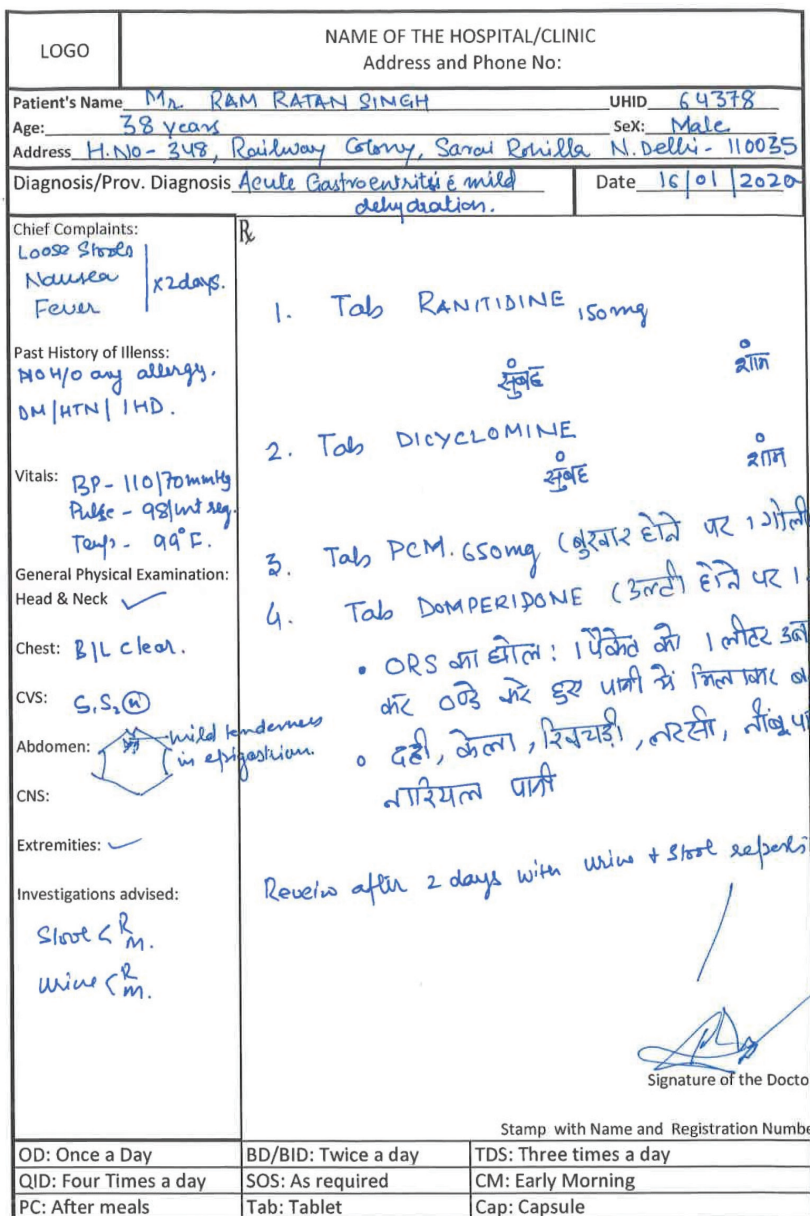 LOGO
NAME OF THE HOSPITAL/CLINIC
Address and Phone No:
Patient's Name Mr RAM RATAN SINGH UHID 64378
Age: 38 years SeX: Male
Address H.NO- 348, Railway Colony, Sarai Rohilla N. Delhi- 110035
Diagnosis/Prov. Diagnosis Acute Gastroentritis c mild
dehydration.
Date 16/01/2020
Chief Complaints:
Loose Stools
Nausea
Fever
x2days.
Past History of Illenss:
NO H/O any allergy.
DM/HTN/IHD.
Vitals: BP- 110/70mmHg
Pulse - 98/mt reg.
Temp - 99°F.
General Physical Examination:
Head & Neck ✓
Chest: B/L clear.
CVS: S1S2 (N)
Abdomen: mild tenderness
in epigastrium.
CNS:
Extremities: ✓
Investigations advised:
Stool < R
M.
Urine < R
M.
Rx
1. Tab RANITIDINE 150mg
सुबह शाम
2. Tab DICYCLOMINE
सुबह शाम
3. Tab PCM. 650mg (बुखार होने पर 1 गोली
4. Tab DOMPERIDONE (उल्टी होने पर 1
• ORS का घोल: 1 पैकेट को 1 लीटर
कर ठण्डे करे हुए पानी में मिलाकर
• दही, केला, खिचड़ी, लस्सी, नींबू
नारियल पानी
Reveiw after 2 days with urine + stool reports
Signature of the Docto
Stamp with Name and Registration Numbe
OD: Once a Day BD/BID: Twice a day TDS: Three times a day
QID: Four Times a day SOS: As required CM: Early Morning
PC: After meals Tab: Tablet Cap: Capsule